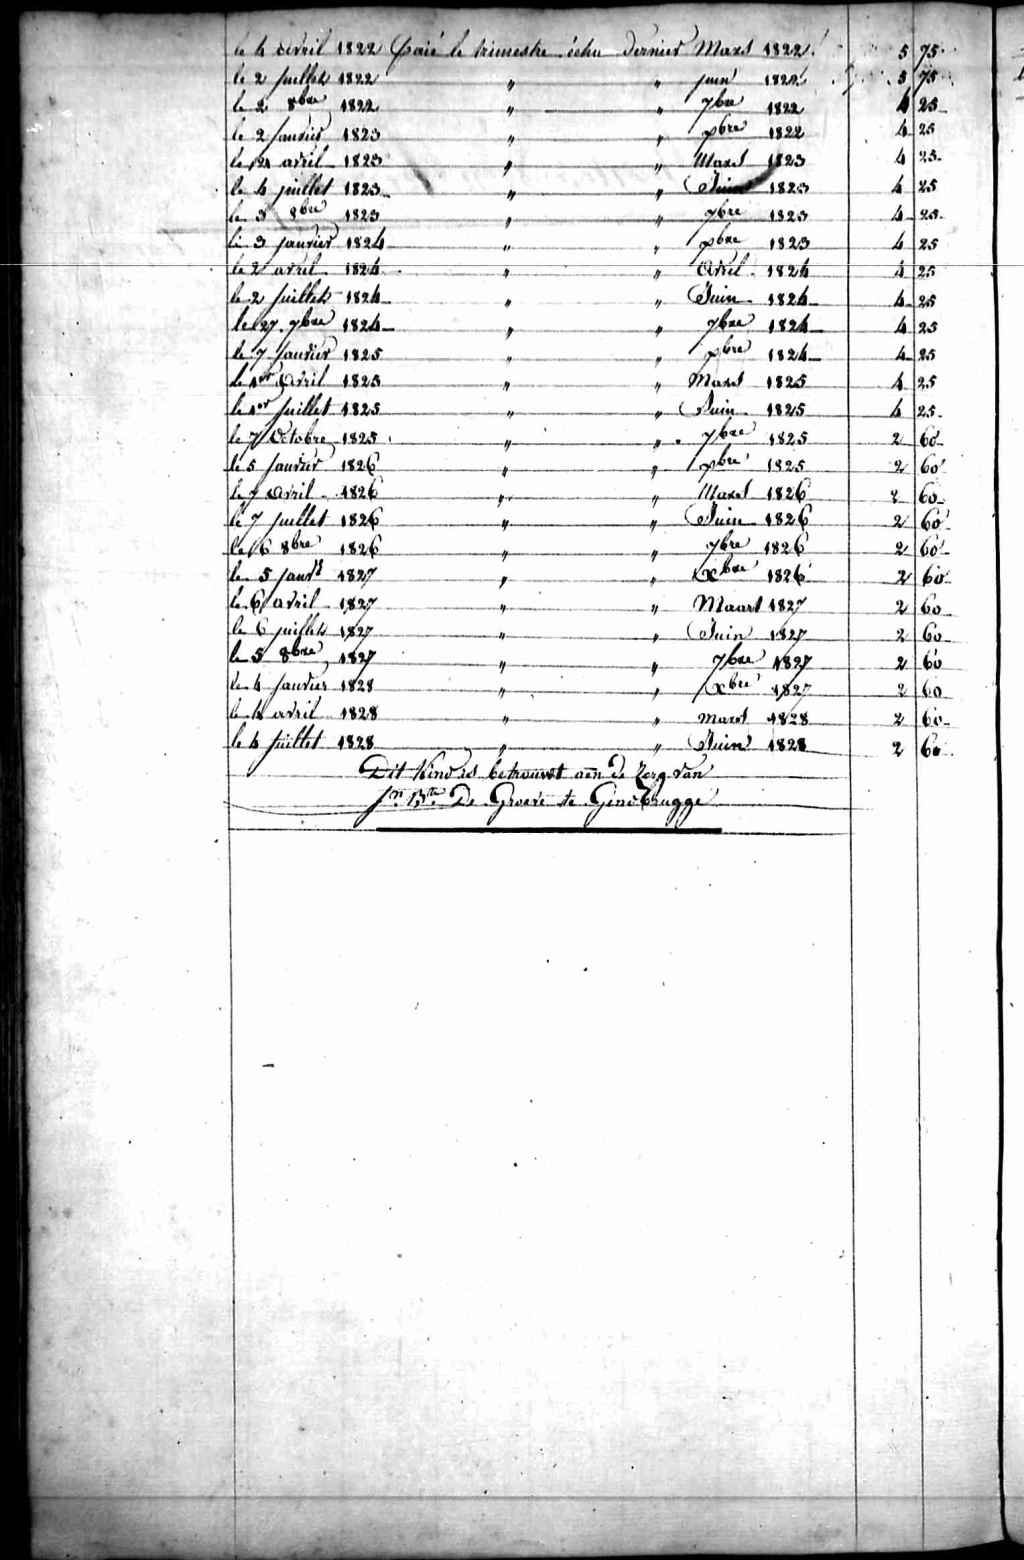 le 4 avril 1822 Paié le trimestre échu dernier Mars 1822 5 75
le 2 juillet 1822 " " juin 1822 5 75
le 2 8bre 1822 " " 7bre 1822 4 25
le 2 Janvier 1823 " " xbre 1822 4 25
le avril 1823 " " Mars 1823 4 25
le 4 juillet 1823 " " Juin 1823 4 25
le 3 8bre 1823 " " 7bre 1823 4 25
le 3 janvier 1824 " " xbre 1823 4 25
le 2 avril 1824 " " Avril 1824 4 25
le 2 juillet 1824 " " Juin 1824 4 25
le 27 7bre 1824 " " 7bre 1824 4 25
le 7 Janvier 1825 " " xbre 1824 4 25
le 1er Avril 1825 " " Mars 1825 4 25
le 1er Juillet 1825 " " Juin 1825 4 25
le 7 Octobre 1825 " " 7bre 1825 2 60
le 5 Janvier 1826 " " xbre 1825 2 60
le 7 Avril 1826 " " Mars 1826 2 60
le 7 juillet 1826 " " Juin 1826 2 60
le 6 8bre 1826 " " 7bre 1826 2 60
le 5 Janvr 1827 " " xbre 1826 2 60
le 6 avril 1827 " " Maart 1827 2 60
le 6 juillet 1827 " " Juin 1827 2 60
le 5 8bre 1827 " " 7bre 1827 2 60
le 4 Janvier 1828 " " xbre 1827 2 60
le 4 avril 1828 " " mars 1828 2 60
le 4 Juillet 1828 " " Juin 1828 2 60
Dit Kind is betrouwt aen de Zorg van
Jn Bte De Groere te Gendbrugge